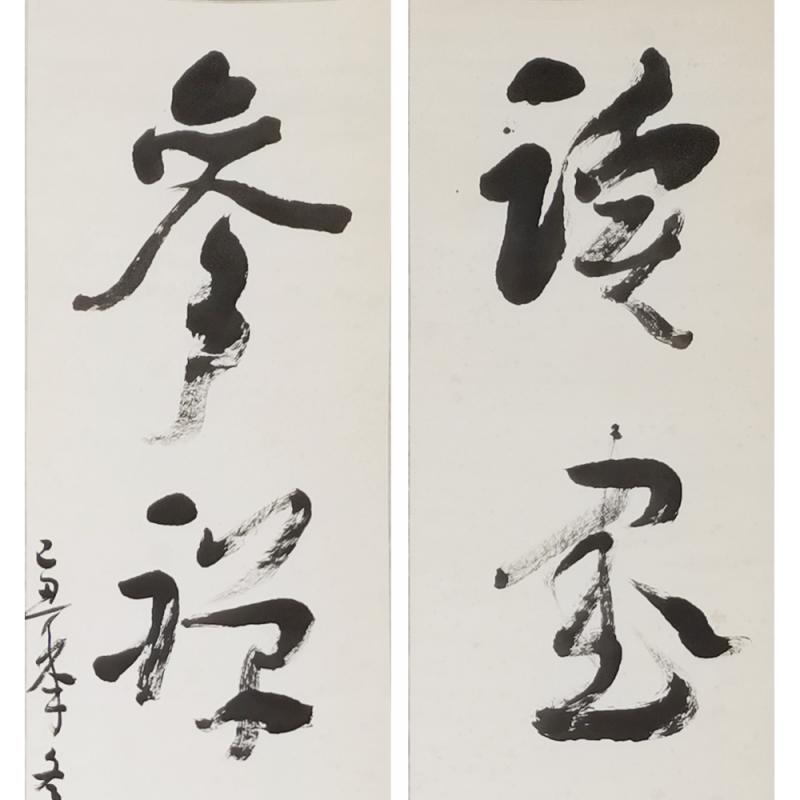 讀畫
參禪
己丑年冬